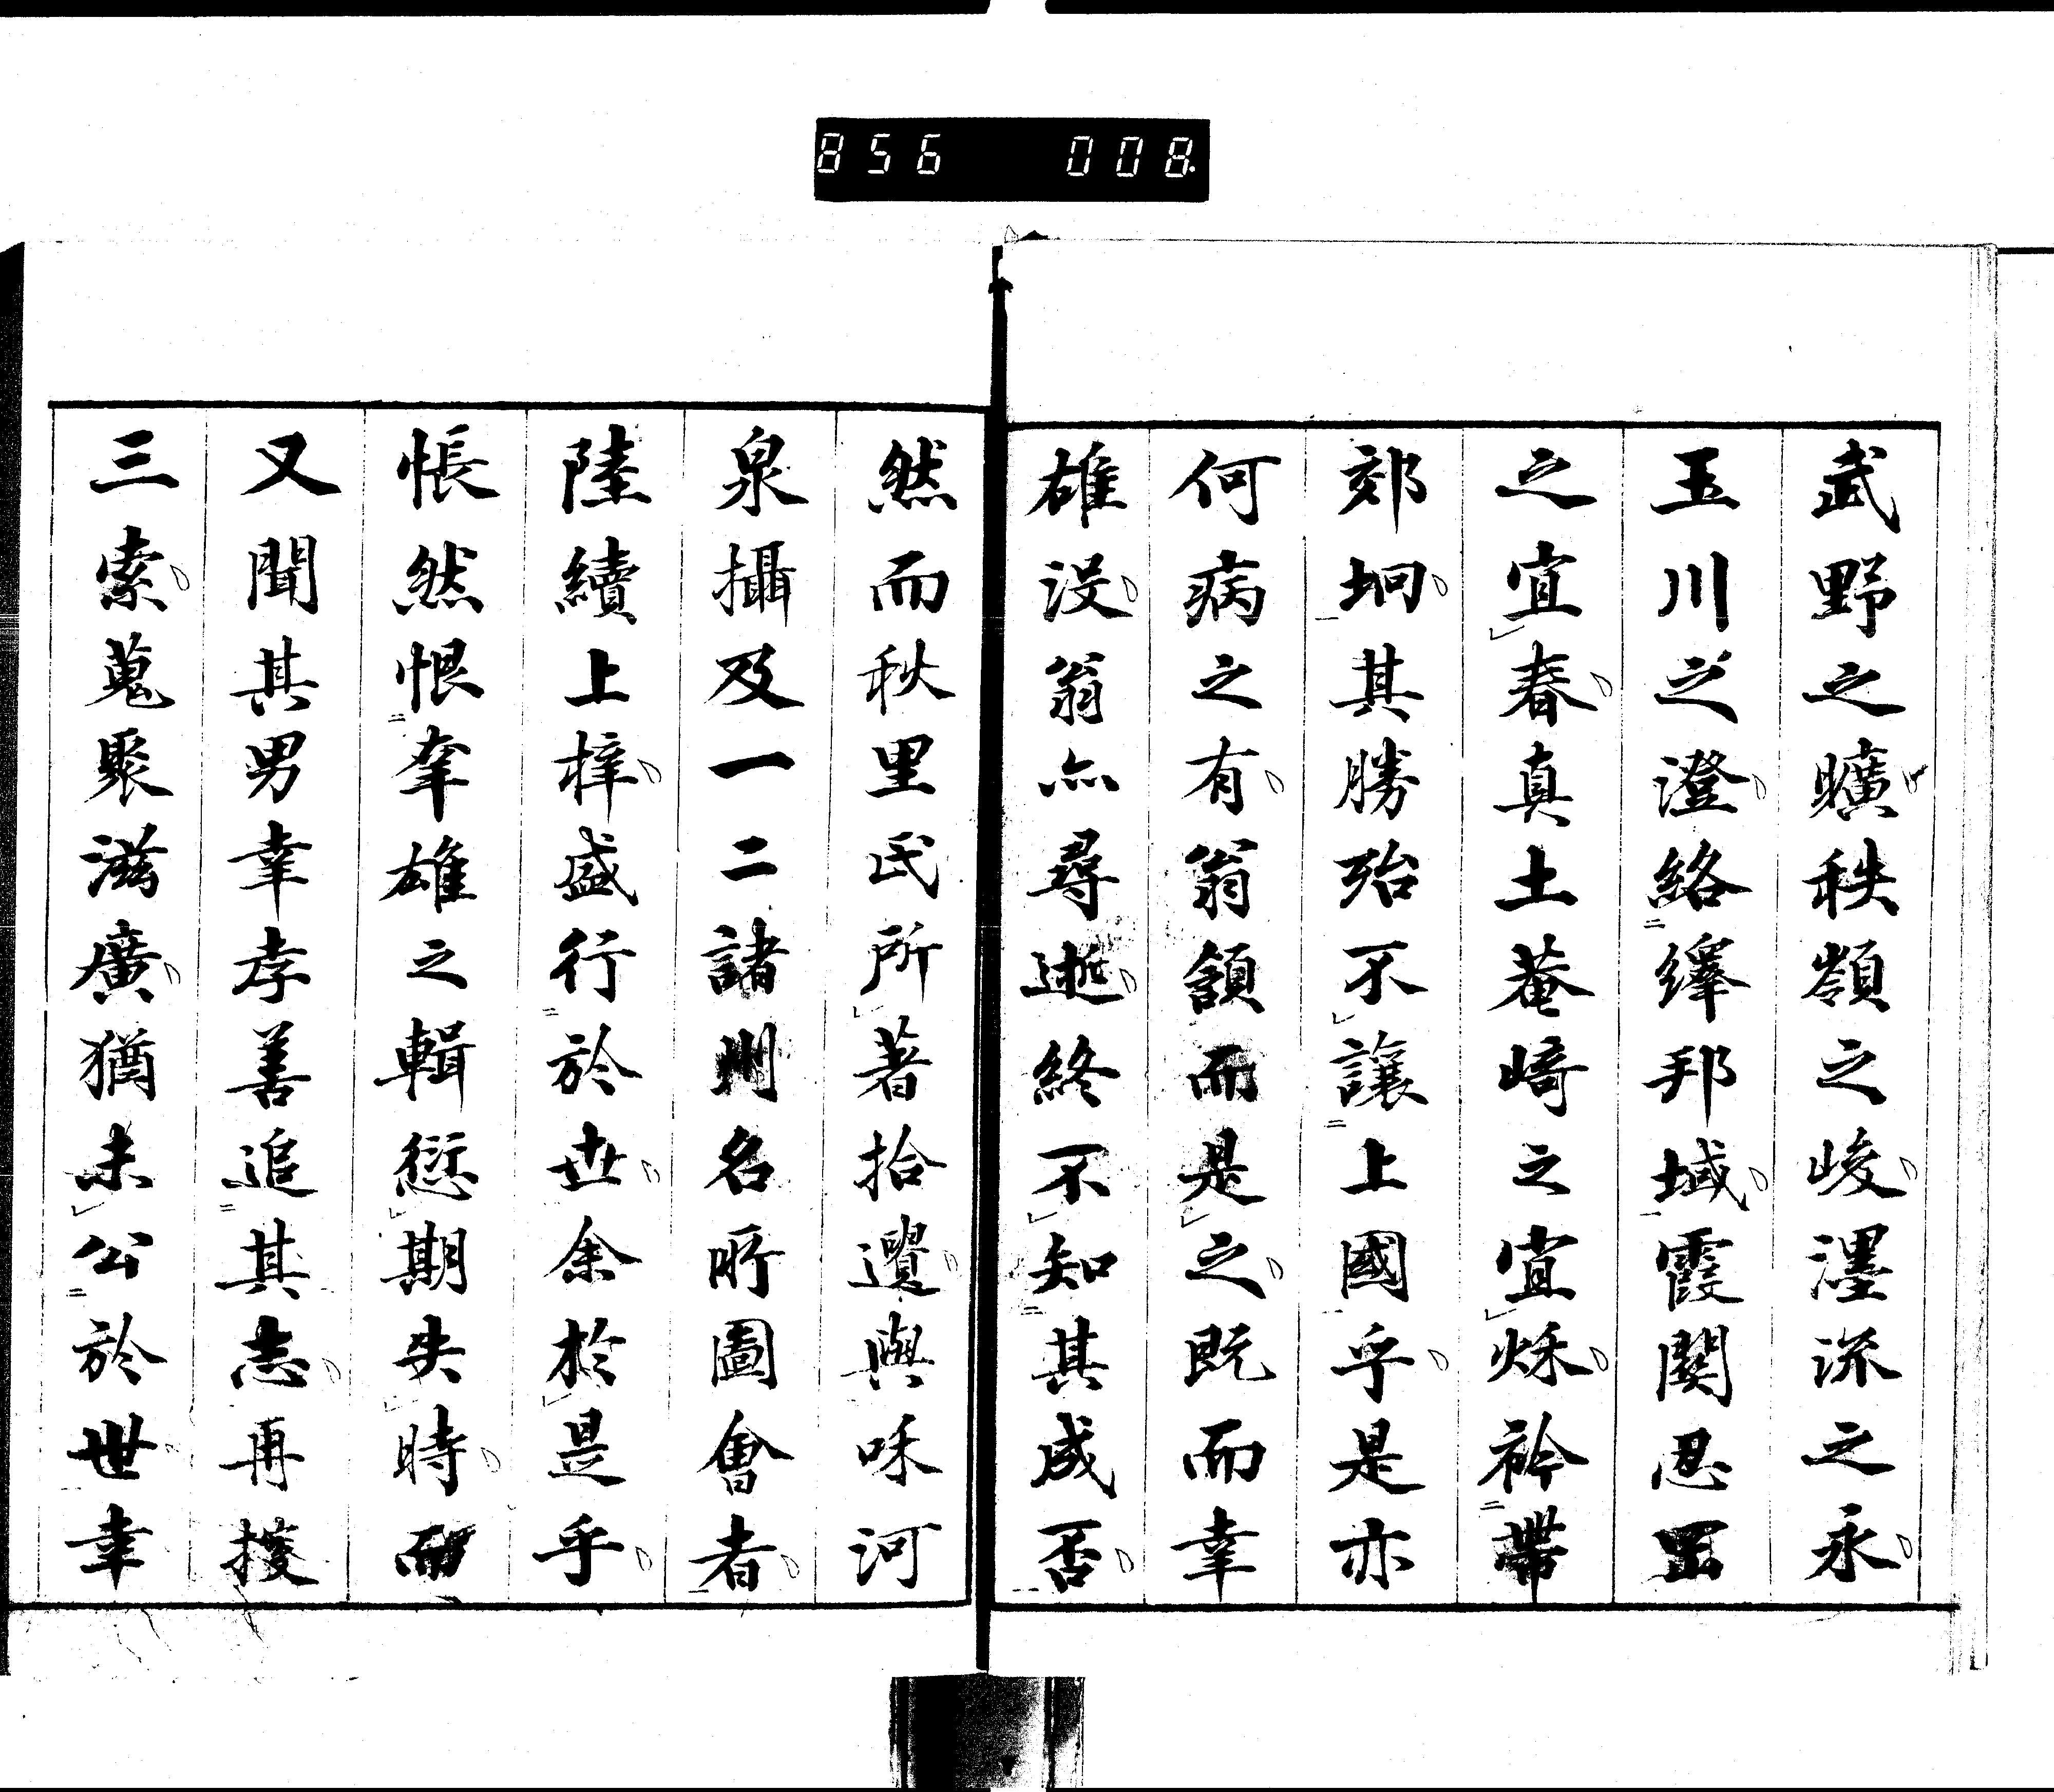 856 008
武野之曠秩嶺之峻濹流之永
玉川之澄絡繹邦域霞関忍罡
之宜春真土菴崎之宜秌衿帶
郊坰其勝殆不讓上國乎是亦
何病之有翁頷而是之既而幸
雄没翁亦尋逝終不知其成否
然而秋里氏所著拾遺與咊河
泉攝及一二諸州名所圖會者
陸續上梓盛行於世余於是乎
悵然恨幸雄之輯愆期失時而
又聞其男幸孝善追其志再搜
三索蒐聚滋廣猶未公於世幸